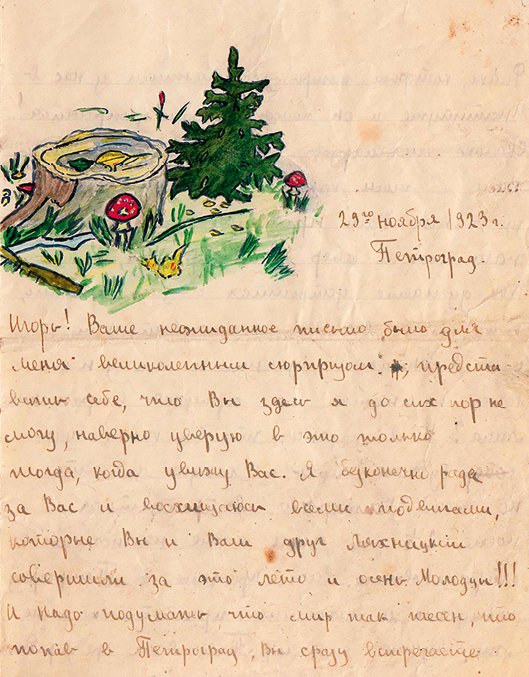 29го ноября 1923 г.
Петроград.
Игорь! Ваше неожиданное письмо было для
меня великолепным сюрпризом: предста
вить себе, что Вы здесь я до сих пор не
могу, наверно уверую в это только
тогда, когда увижу Вас. Я бесконечно рада
за Вас и восхищаюсь всеми подвигами,
которые Вы и Ваш друг Ляхницкий
совершили за это лето и осень. Молодцы!!!
И надо подумать, что мир так тесен, что
попав в Петроград, Вы сразу встречаете